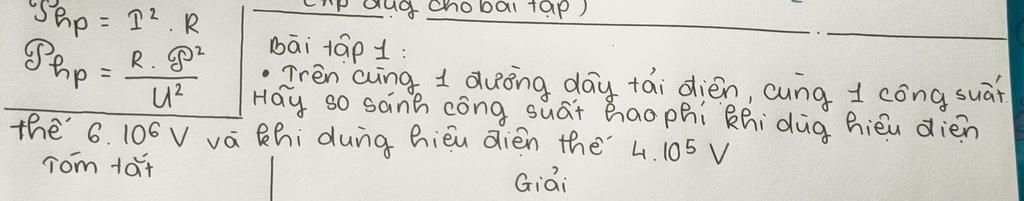 (áp dụg cho bài tập)
𝒫hp = I². R
𝒫hp = R. 𝒫² / U²
Bài tập 1 :
• Trên cùng 1 đường dây tải điện, cùng 1 công suất.
Hãy so sánh công suất hao phí khi dùg hiệu điện
thế 6. 10⁶ V và khi dùng hiệu điện thế 4.10⁵ V
Tóm tắt
Giải